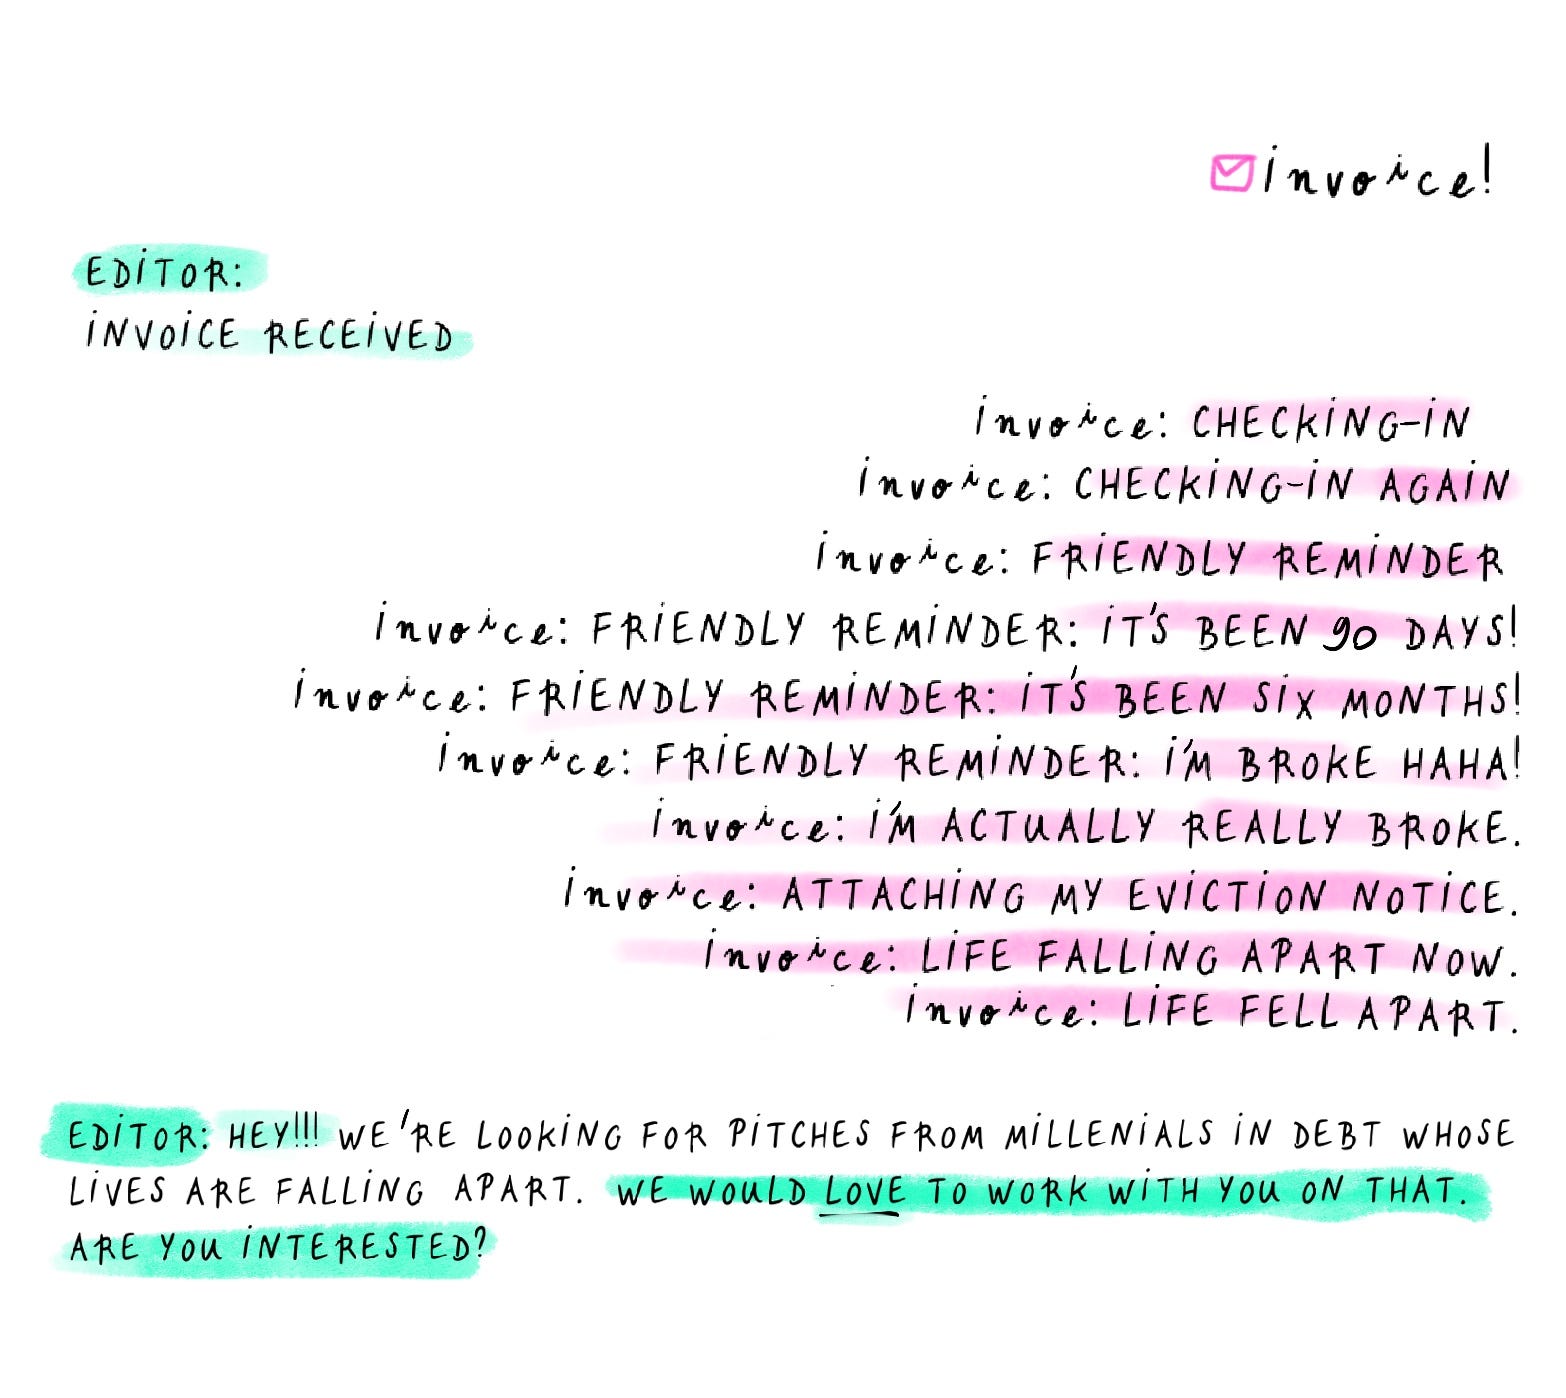 invoice!
EDITOR:
INVOICE RECEIVED
invoice: CHECKING-IN
invoice: CHECKING-IN AGAIN
invoice: FRIENDLY REMINDER
invoice: FRIENDLY REMINDER: IT'S BEEN 90 DAYS!
invoice: FRIENDLY REMINDER: IT'S BEEN SIX MONTHS!
invoice: FRIENDLY REMINDER: I'M BROKE HAHA!
invoice: I'M ACTUALLY REALLY BROKE.
invoice: ATTACHING MY EVICTION NOTICE.
invoice: LIFE FALLING APART NOW.
invoice: LIFE FELL APART.
EDITOR: HEY!!! WE'RE LOOKING FOR PITCHES FROM MILLENIALS IN DEBT WHOSE
LIVES ARE FALLING APART. WE WOULD LOVE TO WORK WITH YOU ON THAT.
ARE YOU INTERESTED?